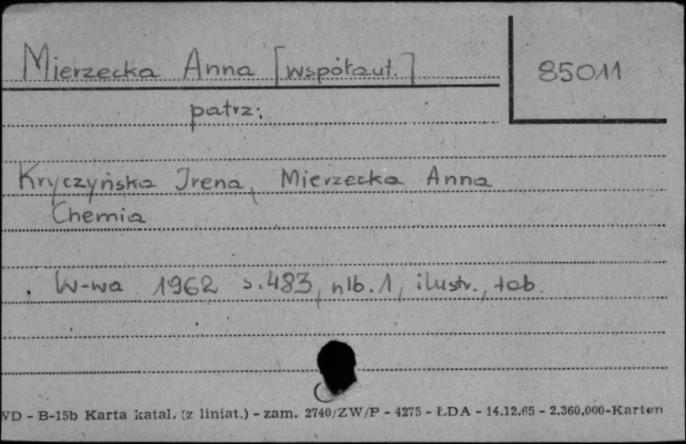 Mierzecka Anna [współaut.]
85011
patrz:
Kryczyńska Irena, Mierzecka Anna
Chemia
W-wa 1962 s.483, nlb.1, ilustr., tab.
VD - B-15b Karta katal. (z liniat.) - zam. 2740/ZW/P - 4275 - ŁDA - 14.12.65 - 2.360,000-Karten